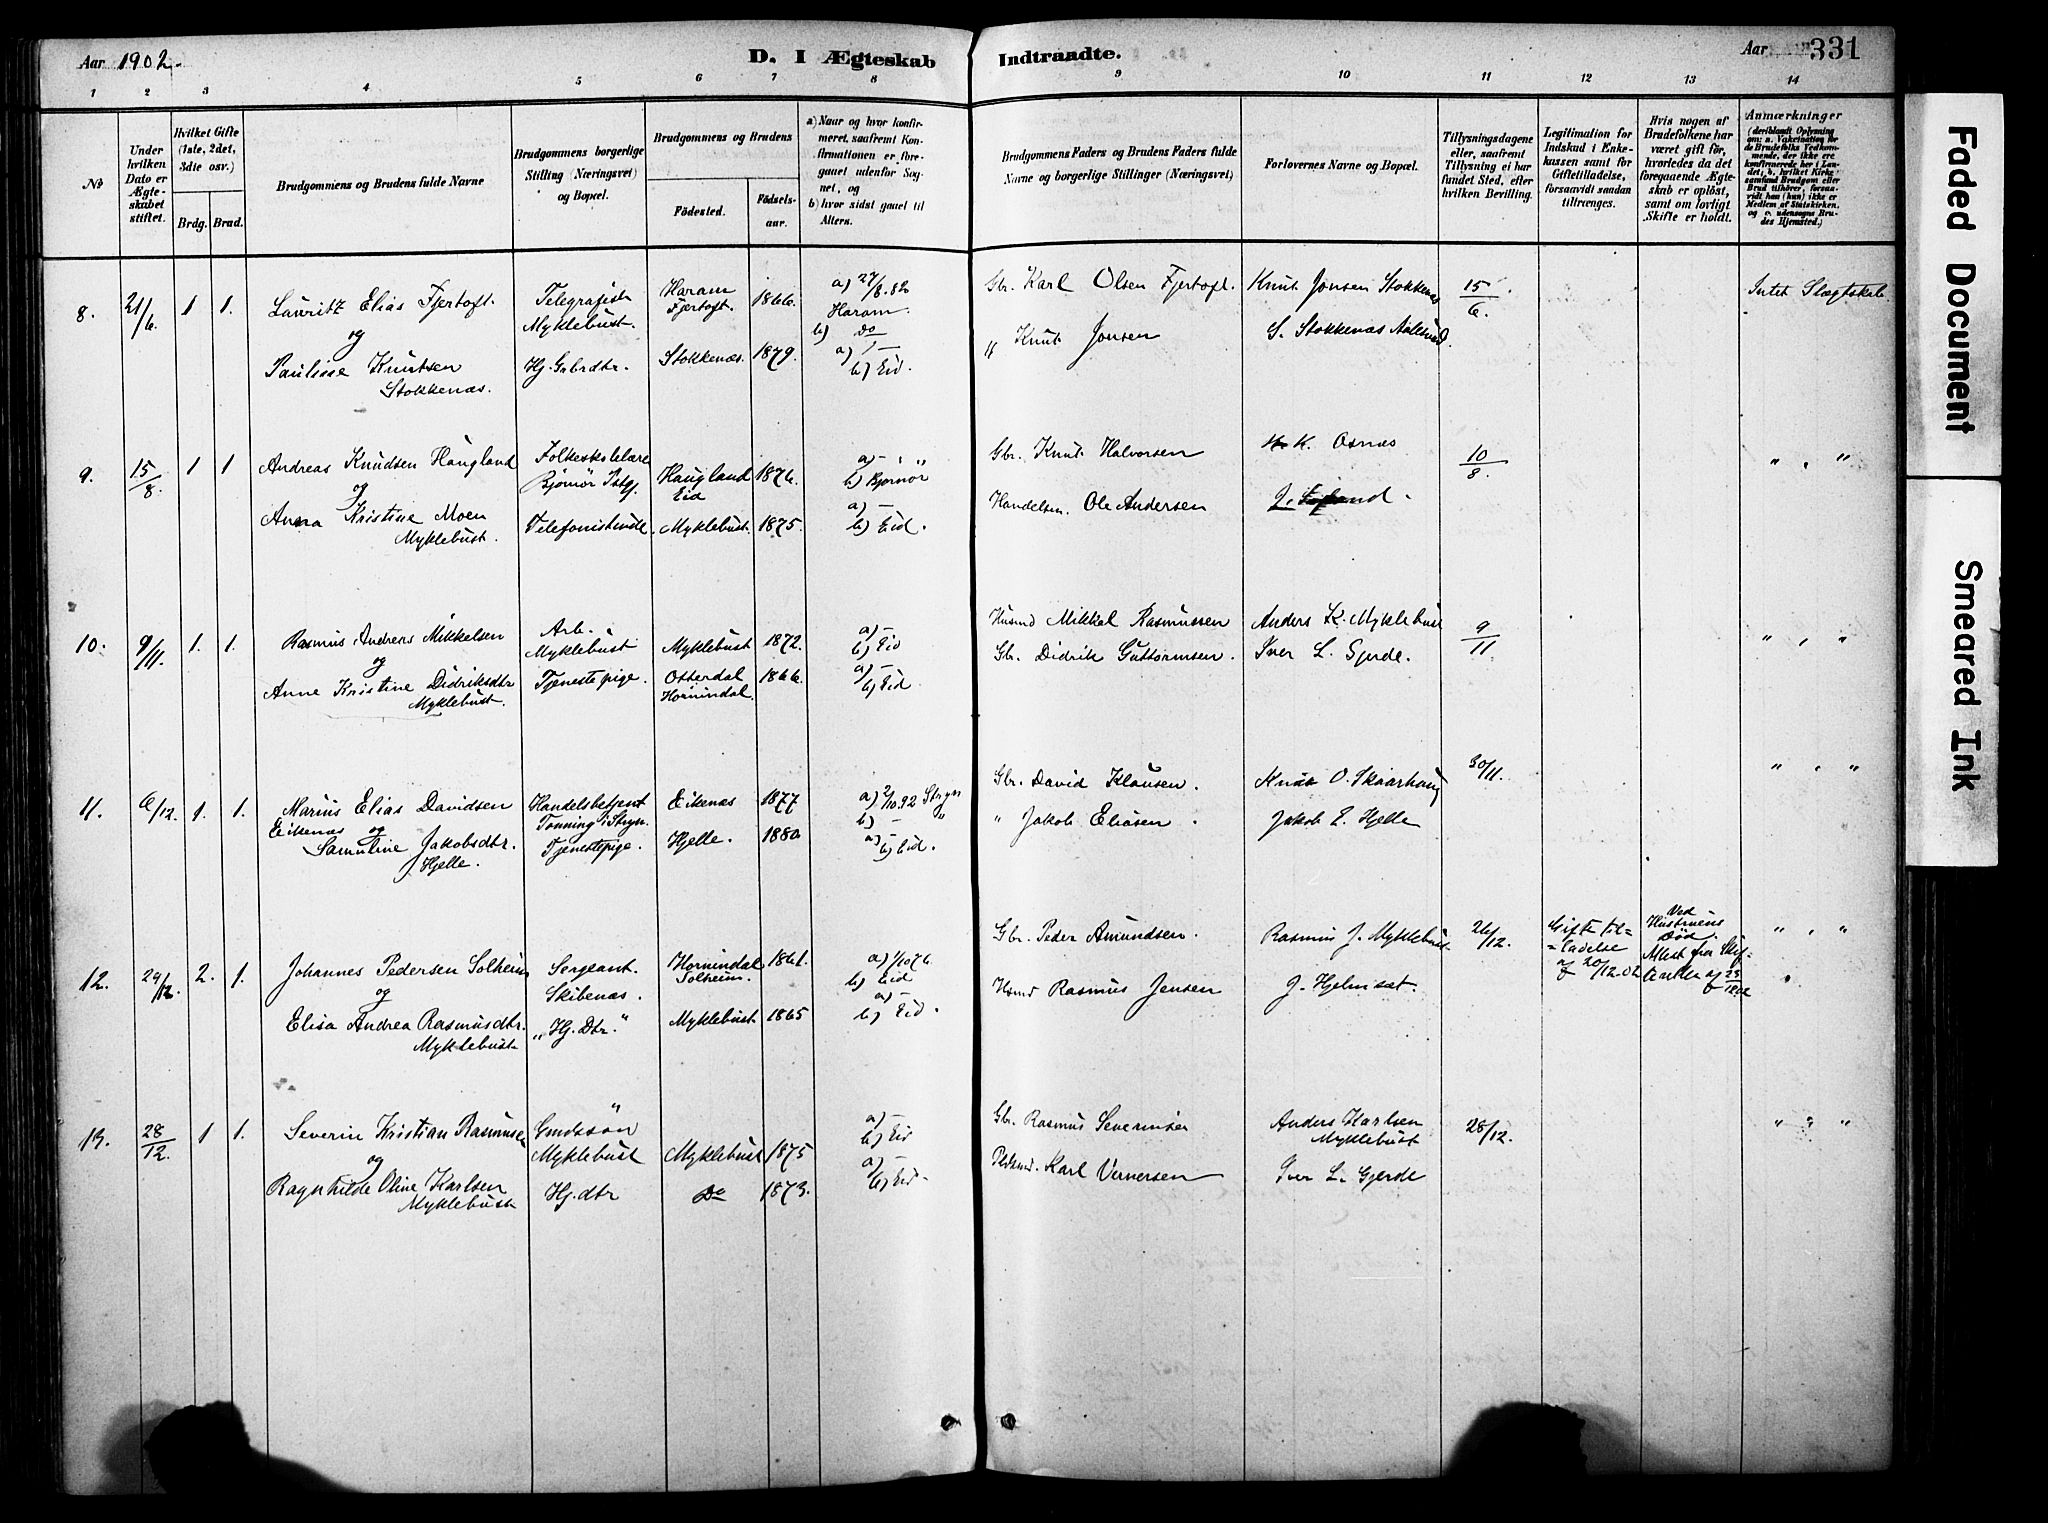 Aar 1902.
D. I Ægteskab Indtraadte.
Aar 331
1 2 3 4 5 6 7 8 9 10 11 12 13 14
No
Under hvilken Dato er Ægteskabet stiftet.
Hvilket Gifte (1ste, 2det, 3die osv.)
Brdg. Brud.
Brudgommens og Brudens fulde Navne
Brudgommens borgerlige Stilling (Næringsvei) og Bopæl.
Brudgommens og Brudens
Födested.
Födselsaar.
a) Naar og hvor konfirmeret, saafremt Konfirmationen er foregaaet udenfor Sognet, og
b) hvor sidst gaaet til Alters.
Brudgommens Faders og Brudens Faders fulde Navne og borgerlige Stillinger (Næringsvei)
Forlovernes Navne og Bopæl.
Tillysningsdagene eller, saafremt Tillysning ei har fundet Sted, efter hvilken Bevilling.
Legitimation for Indskud i Enkekassen samt for Giftetilladelse, forsaavidt saadan tiltrænges.
Hvis nogen af Brudefolkene har været gift för, hvorledes da det foregaaende Ægteskab er oplöst, samt om lovligt Skifte er holdt.
Anmærkninger (deriblandt Oplysning om: a. Vakcination for de Brudefolks Vedkommende, der ikke ere konfirmerede her i Landet; b. hvilket Kirkesamfund Brudgom eller Brud tilhörer, forsaavidt han (hun) ikke er Medlem af Statskirken, og c. udensogns Brudes Hjemsted.)
8. 21/6. 1 1. Lauritz Elias Fjertoft Telegrafist Haram 1866. a) 27/8.82 Gbr. Karl Olsen Fjertoft. Knut Jonsen Stokkenæs 15/6. Intet Slægtskab
og Myklebust. Fjertoft. Haram. b) Do „ Knut Jonsen S. Stokkenæs Aalesund.
Pauline Knutsen Hj. Gbrdtr. Stokkenæs. 1879. a) –
Stokkenæs. b) Eid.
9. 15/8. 1 1 Andreas Knudsen Haugland Folkeskolelærer Haugland 1876. a) – Gbr. Knut Halvorsen K. Osnæs 10/8. „ „ „
og Bjørnør Eid b) Bjørnør
Anna Kristine Moen Telefonistinde. Myklebust. 1875. a) – Handelsm. Ole Andersen
Myklebust. b) Eid.
10. 9/11. 1. 1. Rasmus Andreas Mikkelsen Arb. Myklebust 1872. a) – Husmd Mikkel Rasmussen Anders K. Myklebust 9/11 „ „ „
og Myklebust b) Eid Gbr. Didrik Guttormsen. Iver L. Gjerde.
Anne Kristine Didriksdtr Tjenestepige. Otterdal 1866. a) –
Myklebust. Hornindal. b) Eid
11. 6/12. 1. 1. Marius Elias Davidsen Handelsbetjent Eikenæs 1877 a) 2/10.92 Stryn Gbr. David Klausen. Knut O. Skaarhaug 30/11. „ „ „
Eikenæs og Tonning i Stryn. b) – „
Samuline Jakobsdtr. Tjenestepige. Hjelle. 1880 a) – „ Jakob Eliasen. Jakob E. Hjelle
Hjelle. b) Eid.
12. 29/12. 2. 1. Johannes Pedersen Solheim Sergeant. Hornindal 1861. a) 1/10 76. Gbr. Peder Amundsen. Rasmus J. Myklebust 26/12. Giftetilladelse af 20/12.02 Ved Hustruens Død. Attest fra Skifteretten af „ „ „
og Skibenæs. Solheim. b) Eid Hsmd Rasmus Jensen J. Hjelmsæt.
Elisa Andrea Rasmusdtr. „Hj. Dtr.“ Myklebust 1865 a) –
Myklebust b) Eid.
13. 28/12. 1 1. Severin Kristian Rasmusen Gmdssön Myklebust 1875 a) – Gbr. Rasmus Severinsen Anders Karlsen 28/12. „ „ „
og Myklebust b) Eid Myklebust
Ragnhilde Oline Karlsen Hj. dtr Do 1873. a) – Karl Vernersen Iver L. Gjerde
Myklebust b) Eid.
Faded Document
Smeared Ink